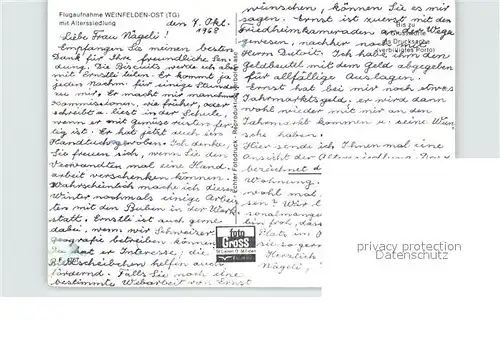 Flugaufnahme WEINFELDEN-OST (TG)
mit Alterssiedlung
den 4. Okt.
1968
Liebe Frau Nägeli!
Empfangen Sie meinen besten
Dank für Ihre freundliche Sen
dung. Die Biscuits werde ich aber
mit Ernstli teilen. Er kommt ja
jeden Nachm. für einige Stunden
zu mir. Er macht mir manchmal
Commissionen, wie früher, oder
schreibt u. liest in der Schule,
wenn er mit Gemüse rüsten fer-
tig ist. Er hat jetzt auch ein
Handtuch gewoben. Ich denke,
Sie freuen sich, wenn Sie den
Verwandten mal eine Hand
arbeit verschenken können.
Wahrscheinlich mache ich diesen
Winter nochmals einige Arbei
ten mit den Buben in der Werk
statt. Ernstli ist auch gerne
dabei, wenn wir Schweizer
geografie betreiben können.
Da hat er Interesse, die
helfen auch
fördernd. Falls Sie noch eine
bestimmte Webarbeit von Ernst
wünschen, können Sie mir
sagen. Ernst ist zuerst mit den
Friedheimkameraden an der Wega
gewesen, nachher noch mit
Herrn Dutoit. Ich habe ihm den
Geldbeutel mit dem Geld abgegeben
für allfällige Auslagen.
Ernst hat bei mir noch etwas
Jahrmarktsgeld, er wird dann
wohl wieder mit mir an den
Jahrmarkt kommen u. seine Wün
sche haben.
Hier sende ich Ihnen mal eine
Ansicht der Alterssiedlung.
bezeichnet d
Wohnung.
wohl mal
sen? Wir l
sonalmange
bin froh, dass
Platz im
sie so ger
Herzlich
Nägeli,
Bis zu
als Drucksache
(verbilligtes Porto)
Echter Fotodruck. Reproduktionsvorbehalt
foto
Gross
privacy protection
Datenschutz